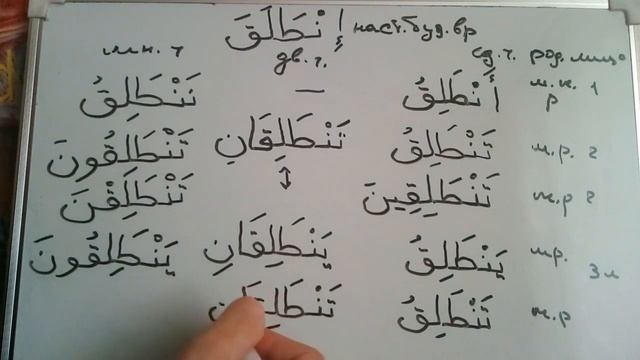 إِنْطَلَقَ наст.буд.вр
мн. ч дв. ч. ед. ч. род. лицо
أَنْطَلِقُ — نَنْطَلِقُ м.ж. р 1
تَنْطَلِقُ تَنْطَلِقَانِ تَنْطَلِقُونَ м.р. 2
تَنْطَلِقِينَ ↕ تَنْطَلِقْنَ ж.р 2
يَنْطَلِقُ يَنْطَلِقَانِ يَنْطَلِقُونَ м.р. 3 л
تَنْطَلِقُ تَنْطَلِقَانِ ж.р